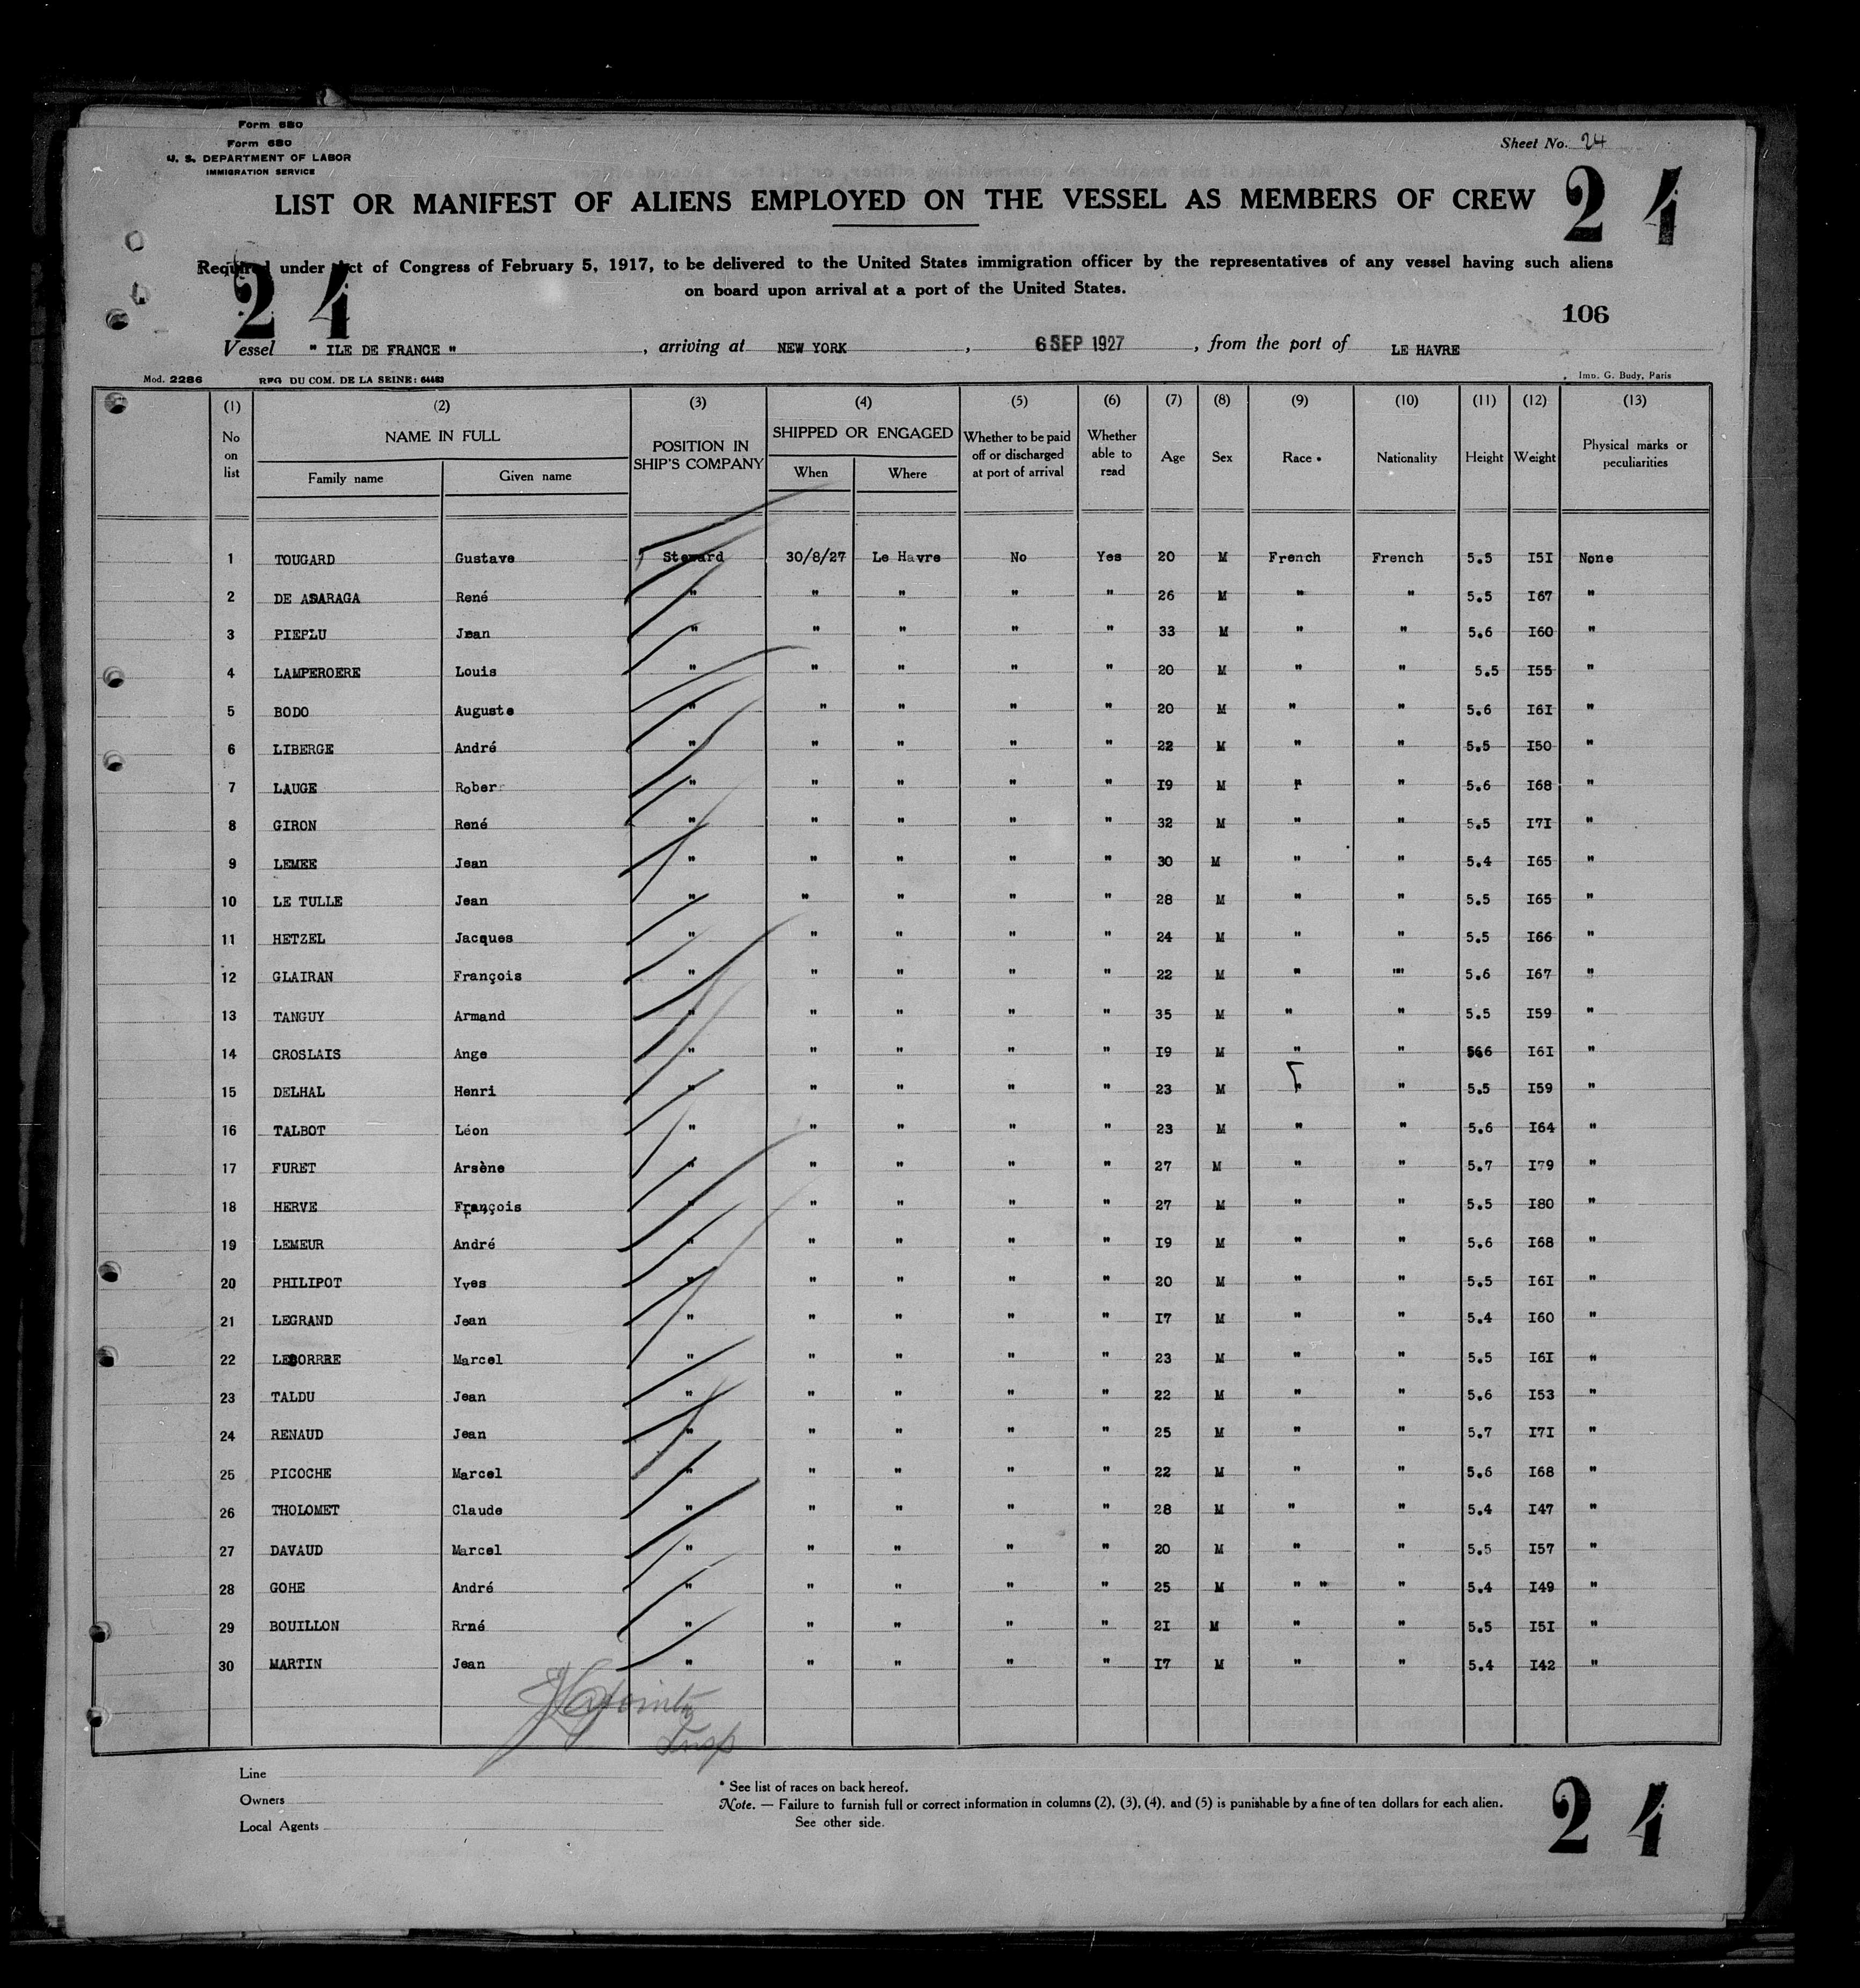 Form 680
Form 680
U. S. DEPARTMENT OF LABOR
IMMIGRATION SERVICE
Sheet No. 24
LIST OR MANIFEST OF ALIENS EMPLOYED ON THE VESSEL AS MEMBERS OF CREW
24
Required under Act of Congress of February 5, 1917, to be delivered to the United States immigration officer by the representatives of any vessel having such aliens
on board upon arrival at a port of the United States.
24
106
Vessel " ILE DE FRANCE " , arriving at NEW YORK , 6 SEP 1927 , from the port of LE HAVRE
Mod. 2286 REG DU COM. DE LA SEINE: 64483 Imp. G. Budy, Paris
(1) (2) (3) (4) (5) (6) (7) (8) (9) (10) (11) (12) (13)
No on list NAME IN FULL Family name Given name POSITION IN SHIP'S COMPANY SHIPPED OR ENGAGED When Where Whether to be paid off or discharged at port of arrival Whether able to read Age Sex Race * Nationality Height Weight Physical marks or peculiarities
1 TOUGARD Gustave Steward 30/8/27 Le Havre No Yes 20 M French French 5.5 I5I None
2 DE ADARAGA René " " " " " 26 M " " 5.5 I67 "
3 PIEPLU Jean " " " " " 33 M " " 5.6 I60 "
4 LAMPEROERE Louis " " " " " 20 M " " 5.5 I55 "
5 BODO Auguste " " " " " 20 M " " 5.6 I6I "
6 LIBERGE André " " " " " 22 M " " 5.5 I50 "
7 LAUGE Rober " " " " " I9 M " " 5.6 I68 "
8 GIRON René " " " " " 32 M " " 5.5 I7I "
9 LEMEE Jean " " " " " 30 M " " 5.4 I65 "
10 LE TULLE Jean " " " " " 28 M " " 5.5 I65 "
11 HETZEL Jacques " " " " " 24 M " " 5.5 I66 "
12 GLAIRAN François " " " " " 22 M " "" 5.6 I67 "
13 TANGUY Armand " " " " " 35 M " " 5.5 I59 "
14 CROSLAIS Ange " " " " " I9 M " " 566 I6I "
15 DELHAL Henri " " " " " 23 M " " 5.5 I59 "
16 TALBOT Léon " " " " " 23 M " " 5.6 I64 "
17 FURET Arsène " " " " " 27 M " " 5.7 I79 "
18 HERVE François " " " " " 27 M " " 5.5 I80 "
19 LEMEUR André " " " " " I9 M " " 5.6 I68 "
20 PHILIPOT Yves " " " " " 20 M " " 5.5 I6I "
21 LEGRAND Jean " " " " " I7 M " " 5.4 I60 "
22 LEBORRRE Marcel " " " " " 23 M " " 5.5 I6I "
23 TALDU Jean " " " " " 22 M " " 5.6 I53 "
24 RENAUD Jean " " " " " 25 M " " 5.7 I7I "
25 PICOCHE Marcel " " " " " 22 M " " 5.6 I68 "
26 THOLOMET Claude " " " " " 28 M " " 5.4 I47 "
27 DAVAUD Marcel " " " " " 20 M " " 5.5 I57 "
28 GOHE André " " " " " 25 M " " " 5.4 I49 "
29 BOUILLON Rrné " " " " " 2I M " " 5.5 I5I "
30 MARTIN Jean " " " " " I7 M " " 5.4 I42 "
Insp
Line
Owners
Local Agents
* See list of races on back hereof.
Note. — Failure to furnish full or correct information in columns (2), (3), (4), and (5) is punishable by a fine of ten dollars for each alien.
See other side.
24